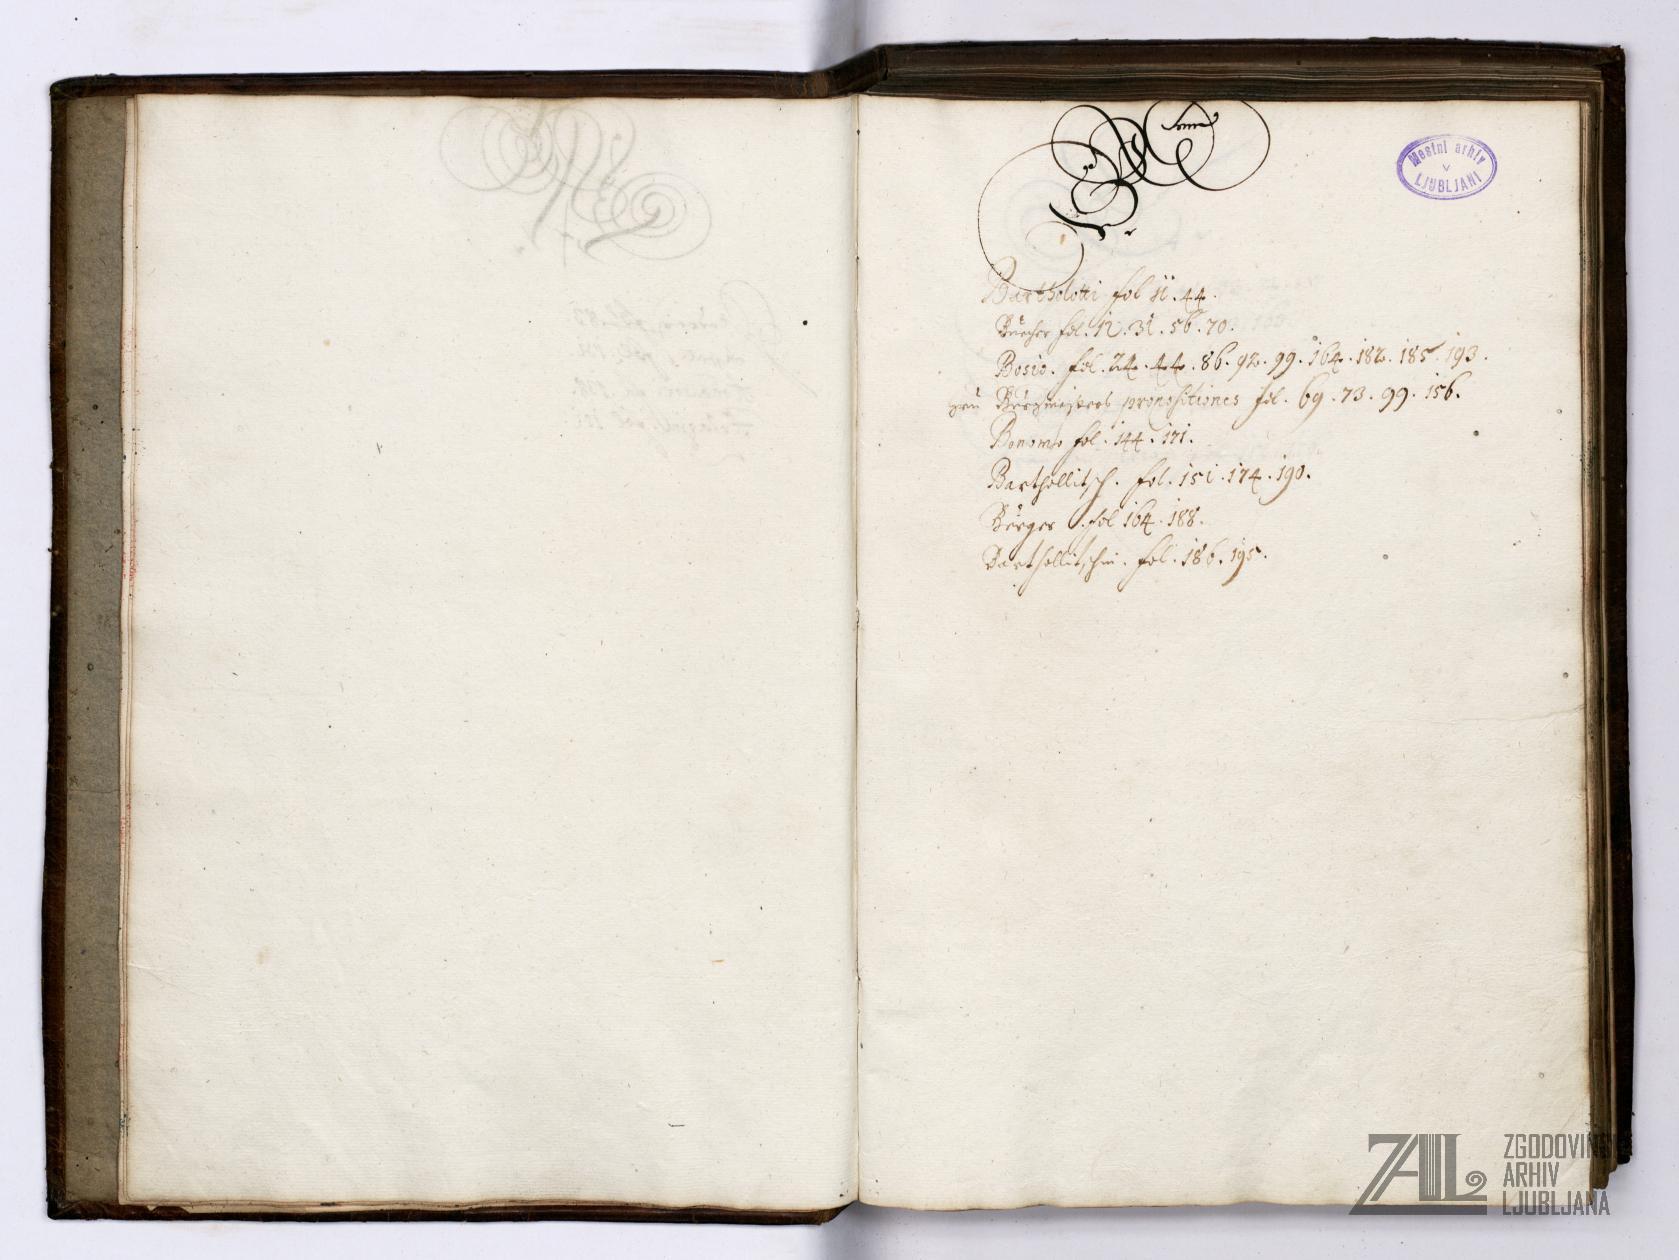 B
Mestni arhiv
v
LJUBLJANI
Bartholotti fol 11. 44.
Buecher fol. 12. 31. 56. 70.
Bosio. fol. 24. 44. 86. 92. 99. 164. 182. 185. 193.
Burgmeisters propositiones fol. 69. 73. 99. 156.
Bonomo fol. 144. 171.
Barthollitsch. fol. 151. 174. 190.
Burger fol 164. 188.
Barthollitschin. fol. 186. 195.
ZAL
ZGODOVINSKI
ARHIV
LJUBLJANA